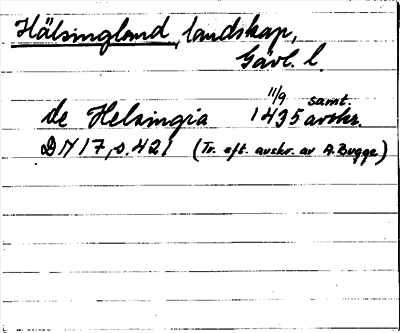 Hälsingland, landskap,
Gävl. l.
de Helsingia 11/9 1435 samt. avskr.
DN 17, s. 421 (Tr. eft. avskr. av A. Bugge)